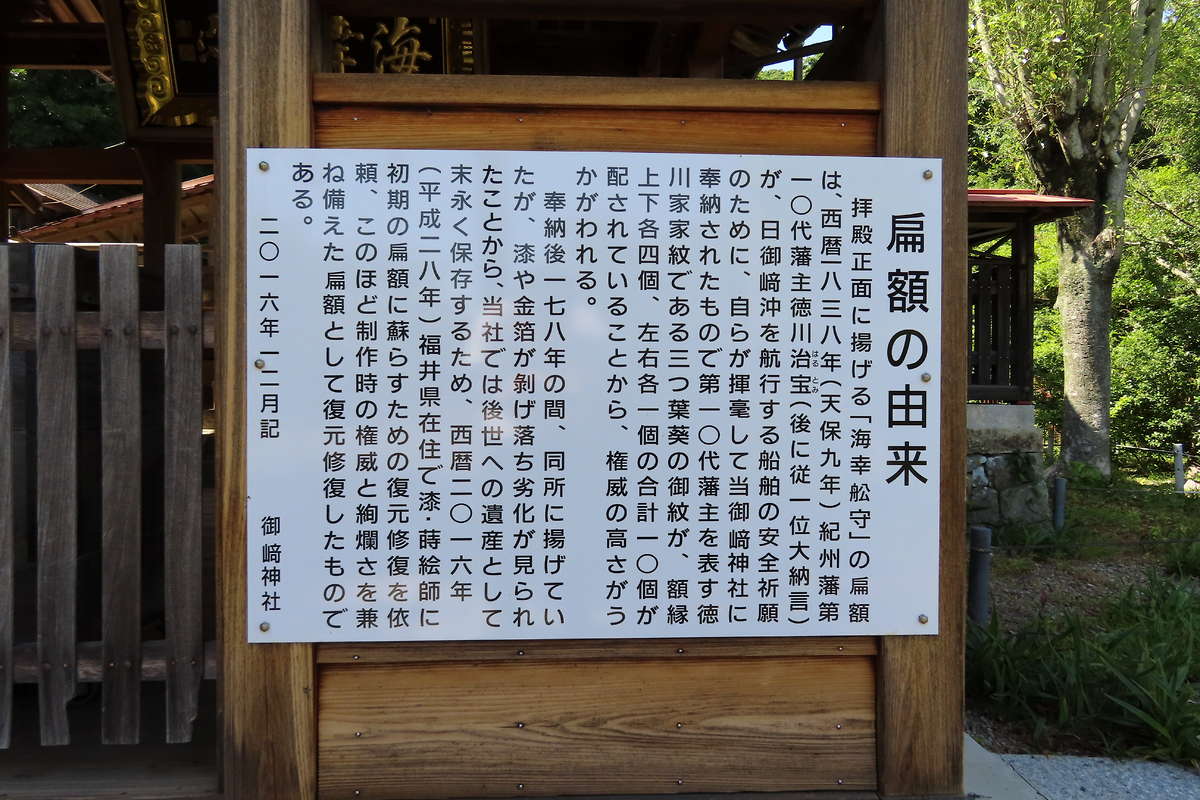 海幸
扁額の由来
拝殿正面に揚げる「海幸舩守」の扁額
は、西暦一八三八年(天保九年)紀州藩第
一〇代藩主徳川治宝(後に従一位大納言)
はるとみ
が、日御﨑沖を航行する船舶の安全祈願
のために、自らが揮毫して当御﨑神社に
奉納されたもので第一〇代藩主を表す徳
川家家紋である三つ葉葵の御紋が、額縁
上下各四個、左右各一個の合計一〇個が
配されていることから、権威の高さがう
かがわれる。
奉納後一七八年の間、同所に揚げてい
たが、漆や金箔が剝げ落ち劣化が見られ
たことから、当社では後世への遺産として
末永く保存するため、西暦二〇一六年
(平成二八年)福井県在住で漆・蒔絵師に
初期の扁額に蘇らすための復元修復を依
頼、このほど制作時の権威と絢爛さを兼
ね備えた扁額として復元修復したもので
ある。
二〇一六年一二月記 御﨑神社